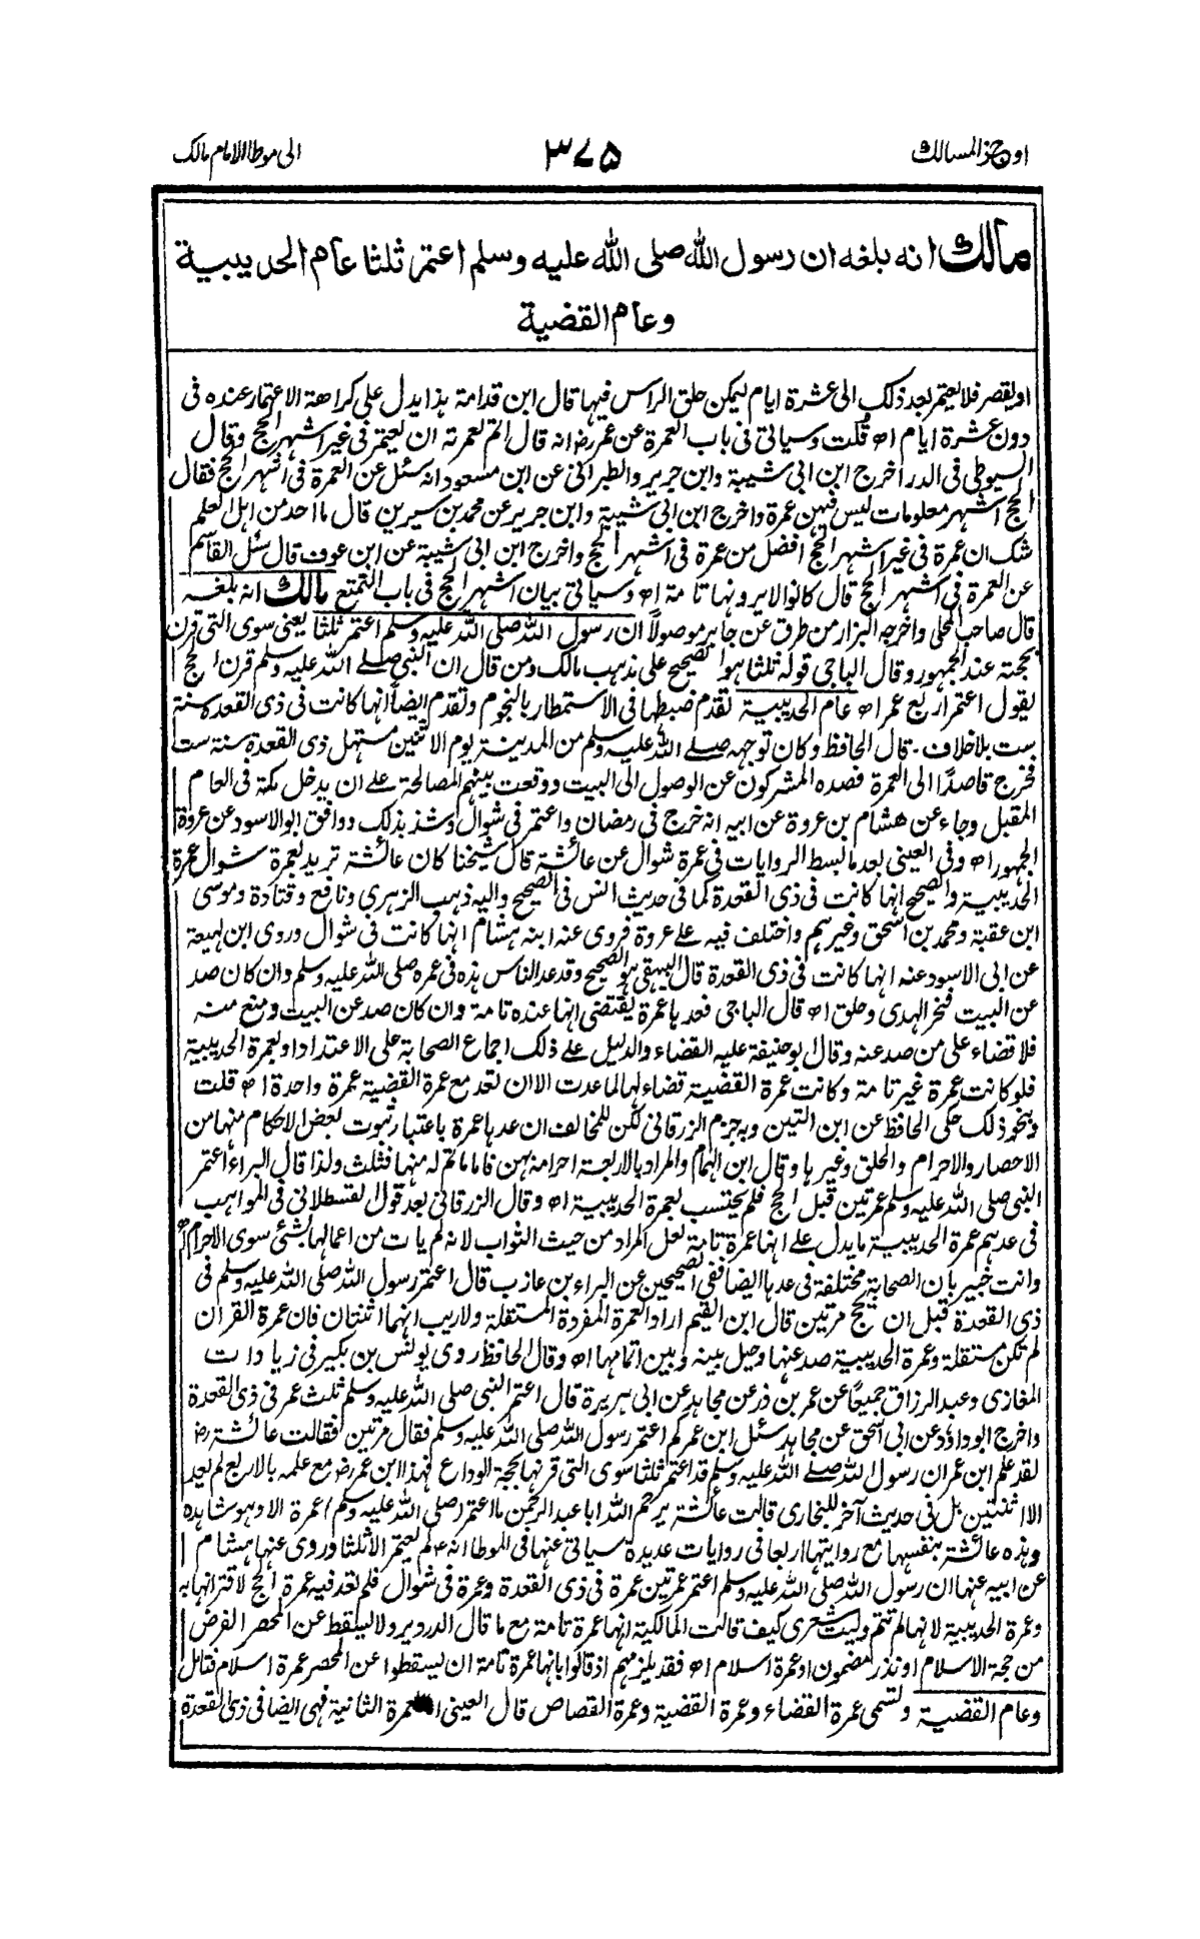 اوجز المسالك
۳۷۵
الى موطا الامام مالك
مالك انه بلغه ان رسول الله صلى الله عليه وسلم اعتمر ثلثا عام الحديبية
وعام القضية
او يقصر فلا يعتمر بعد ذلك الى عشرة ايام ليمكن حلق الراس فيها قال ابن قدامة هذا يدل على كراهة الاعتمار عنده فى
دون عشرة ايام اھ قلت وسياتى فى باب العمرة عن عمر رض انه قال اتم لعمرته ان يعتمر فى غير اشهر الحج وقال
السيوطى فى الدر اخرج ابن ابى شيبة وابن جرير والطبرانى عن ابن مسعود انه سئل عن العمرة فى اشهر الحج فقال
الحج اشهر معلومات ليس فيهن عمرة واخرج ابن ابى شيبة وابن جرير عن محمد بن سيرين قال ما احد من اهل العلم
شك ان عمرة فى غير اشهر الحج افضل من عمرة فى اشهر الحج واخرج ابن ابى شيبة عن ابن عوف قال سئل القاسم
عن العمرة فى اشهر الحج قال كانوا لا يرونها تامة اھ وسياتى بيان اشهر الحج فى باب التمتع مالك انه بلغه
قال صاحب المحلى واخرجه البزار من طرق عن جابر موصولاً ان رسول الله صلى الله عليه وسلم اعتمر ثلثا يعنى سوى التى قرن
بحجته عند الجمهور وقال الباجى قوله ثلثا هو الصحيح على مذهب مالك ومن قال ان النبى صلى الله عليه وسلم قرن الحج
يقول اعتمر اربع عمر اھ عام الحديبية تقدم ضبطها فى الاستمطار بالنجوم وتقدم ايضاً انها كانت فى ذى القعدة سنة
ست بلا خلاف ۔ قال الحافظ وكان توجهه صلى الله عليه وسلم من المدينة يوم الاثنين مستهل ذى القعدة سنة ست
فخرج قاصدًا الى العمرة فصده المشركون عن الوصول الى البيت ووقعت بينهم المصالحة على ان يدخل مكة فى العام
المقبل وجاء عن هشام بن عروة عن ابيه انه خرج فى رمضان واعتمر فى شوال وشذ بذلك ووافق ابو الاسود عن عروة
الجمهور اھ وفى العينى بعد ما بسط الروايات فى عمرة شوال عن عائشة قال شيخنا كان عائشة تريد بعمرة شوال عمرة
الحديبية والصحيح انها كانت فى ذى القعدة كما فى حديث انس فى الصحيح واليه ذهب الزهرى ونافع وقتادة وموسى
ابن عقبة ومحمد بن اسحق وغيرهم واختلف فيه على عروة فروى عنه ابنه هشام انها كانت فى شوال وروى ابن لهيعة
عن ابى الاسود عنه انها كانت فى ذى القعدة قال البيهقى هو الصحيح وقد عد الناس هذه فى عمره صلى الله عليه وسلم وان كان صد
عن البيت فنحر الهدى وحلق اھ قال الباجى فعدها عمرة يقتضى انها عنده تامة وان كان صد عن البيت ومنع منه
فلا قضاء على من صد عنه وقال ابو حنيفة عليه القضاء والدليل على ذلك اجماع الصحابة على الاعتداد بعمرة الحديبية
فلو كانت عمرة غير تامة وكانت عمرة القضية قضاء لها لما عدت الا ان تعد مع عمرة القضية عمرة واحدة اھ قلت
وبنحو ذلك حكى الحافظ عن ابن التين وبه جزم الزرقانى لكن للمخالف ان عدها عمرة باعتبار ثبوت بعض الاحكام منها من
الاحصار والاحرام والحلق وغيرها وقال ابن الهمام والمراد بالاربعة احرامه بهن فاما ما تم له منها فثلث ولذا قال البراء اعتمر
النبى صلى الله عليه وسلم عمرتين قبل الحج فلم يحتسب بعمرة الحديبية اھ وقال الزرقانى بعد قول القسطلانى فى المواهب
فى عدهم عمرة الحديبية ما يدل على انها عمرة تامة لعل المراد من حيث الثواب لانه لم يات من اعمالها بشئ سوى الاحرام اھ
وانت خبير بان الصحابة مختلفة فى عدها ايضا ففى الصحيحين عن البراء بن عازب قال اعتمر رسول الله صلى الله عليه وسلم فى
ذى القعدة قبل ان يحج مرتين قال ابن القيم اراد العمرة المفردة المستقلة ولا ريب انهما اثنتان فان عمرة القران
لم تكن مستقلة وعمرة الحديبية صد عنها وحيل بينه وبين اتمامها اھ وقال الحافظ روى يونس بن بكير فى زيادات
المغازى وعبد الرزاق جميعاً عن عمر بن ذر عن مجاهد عن ابى هريرة قال اعتمر النبى صلى الله عليه وسلم ثلث عمر فى ذى القعدة
واخرج ابو داؤد عن ابى اسحق عن مجاهد سئل ابن عمر كم اعتمر رسول الله صلى الله عليه وسلم فقال مرتين فقالت عائشة رض
لقد علم ابن عمر ان رسول الله صلى الله عليه وسلم قد اعتمر ثلثا سوى التى قرنها بحجة الوداع فهذا ابن عمر رض مع علمه بالاربع لم يعد
الا اثنتين بل فى حديث آخر للبخارى قالت عائشة يرحم الله ابا عبد الرحمن ما اعتمر (صلى الله عليه وسلم) عمرة الا وهو شاهده
وهذه عائشة بنفسها مع روايتها اربعا فى روايات عديدة سياتى عنها فى الموطا انه م لم يعتمر الا ثلثا وروى عنها هشام
عن ابيه عنها ان رسول الله صلى الله عليه وسلم اعتمر عمرتين عمرة فى ذى القعدة وعمرة فى شوال فلم تعد فيه عمرة الحج لاقترانها به
وعمرة الحديبية لانها لم تتم وليت شعرى كيف قالت المالكية انها عمرة تامة مع ما قال الدردير ولا يسقط عن المحصر الفرض
من حجة الاسلام او نذر مضمون او عمرة اسلام اھ فقد يلزمهم اذ قالوا بانها عمرة تامة ان يسقطوا عن المحصر عمرة اسلام فتامل
وعام القضية وتسمى عمرة القضاء وعمرة القضية وعمرة القصاص قال العينى العمرة الثانية فهى ايضا فى ذى القعدة